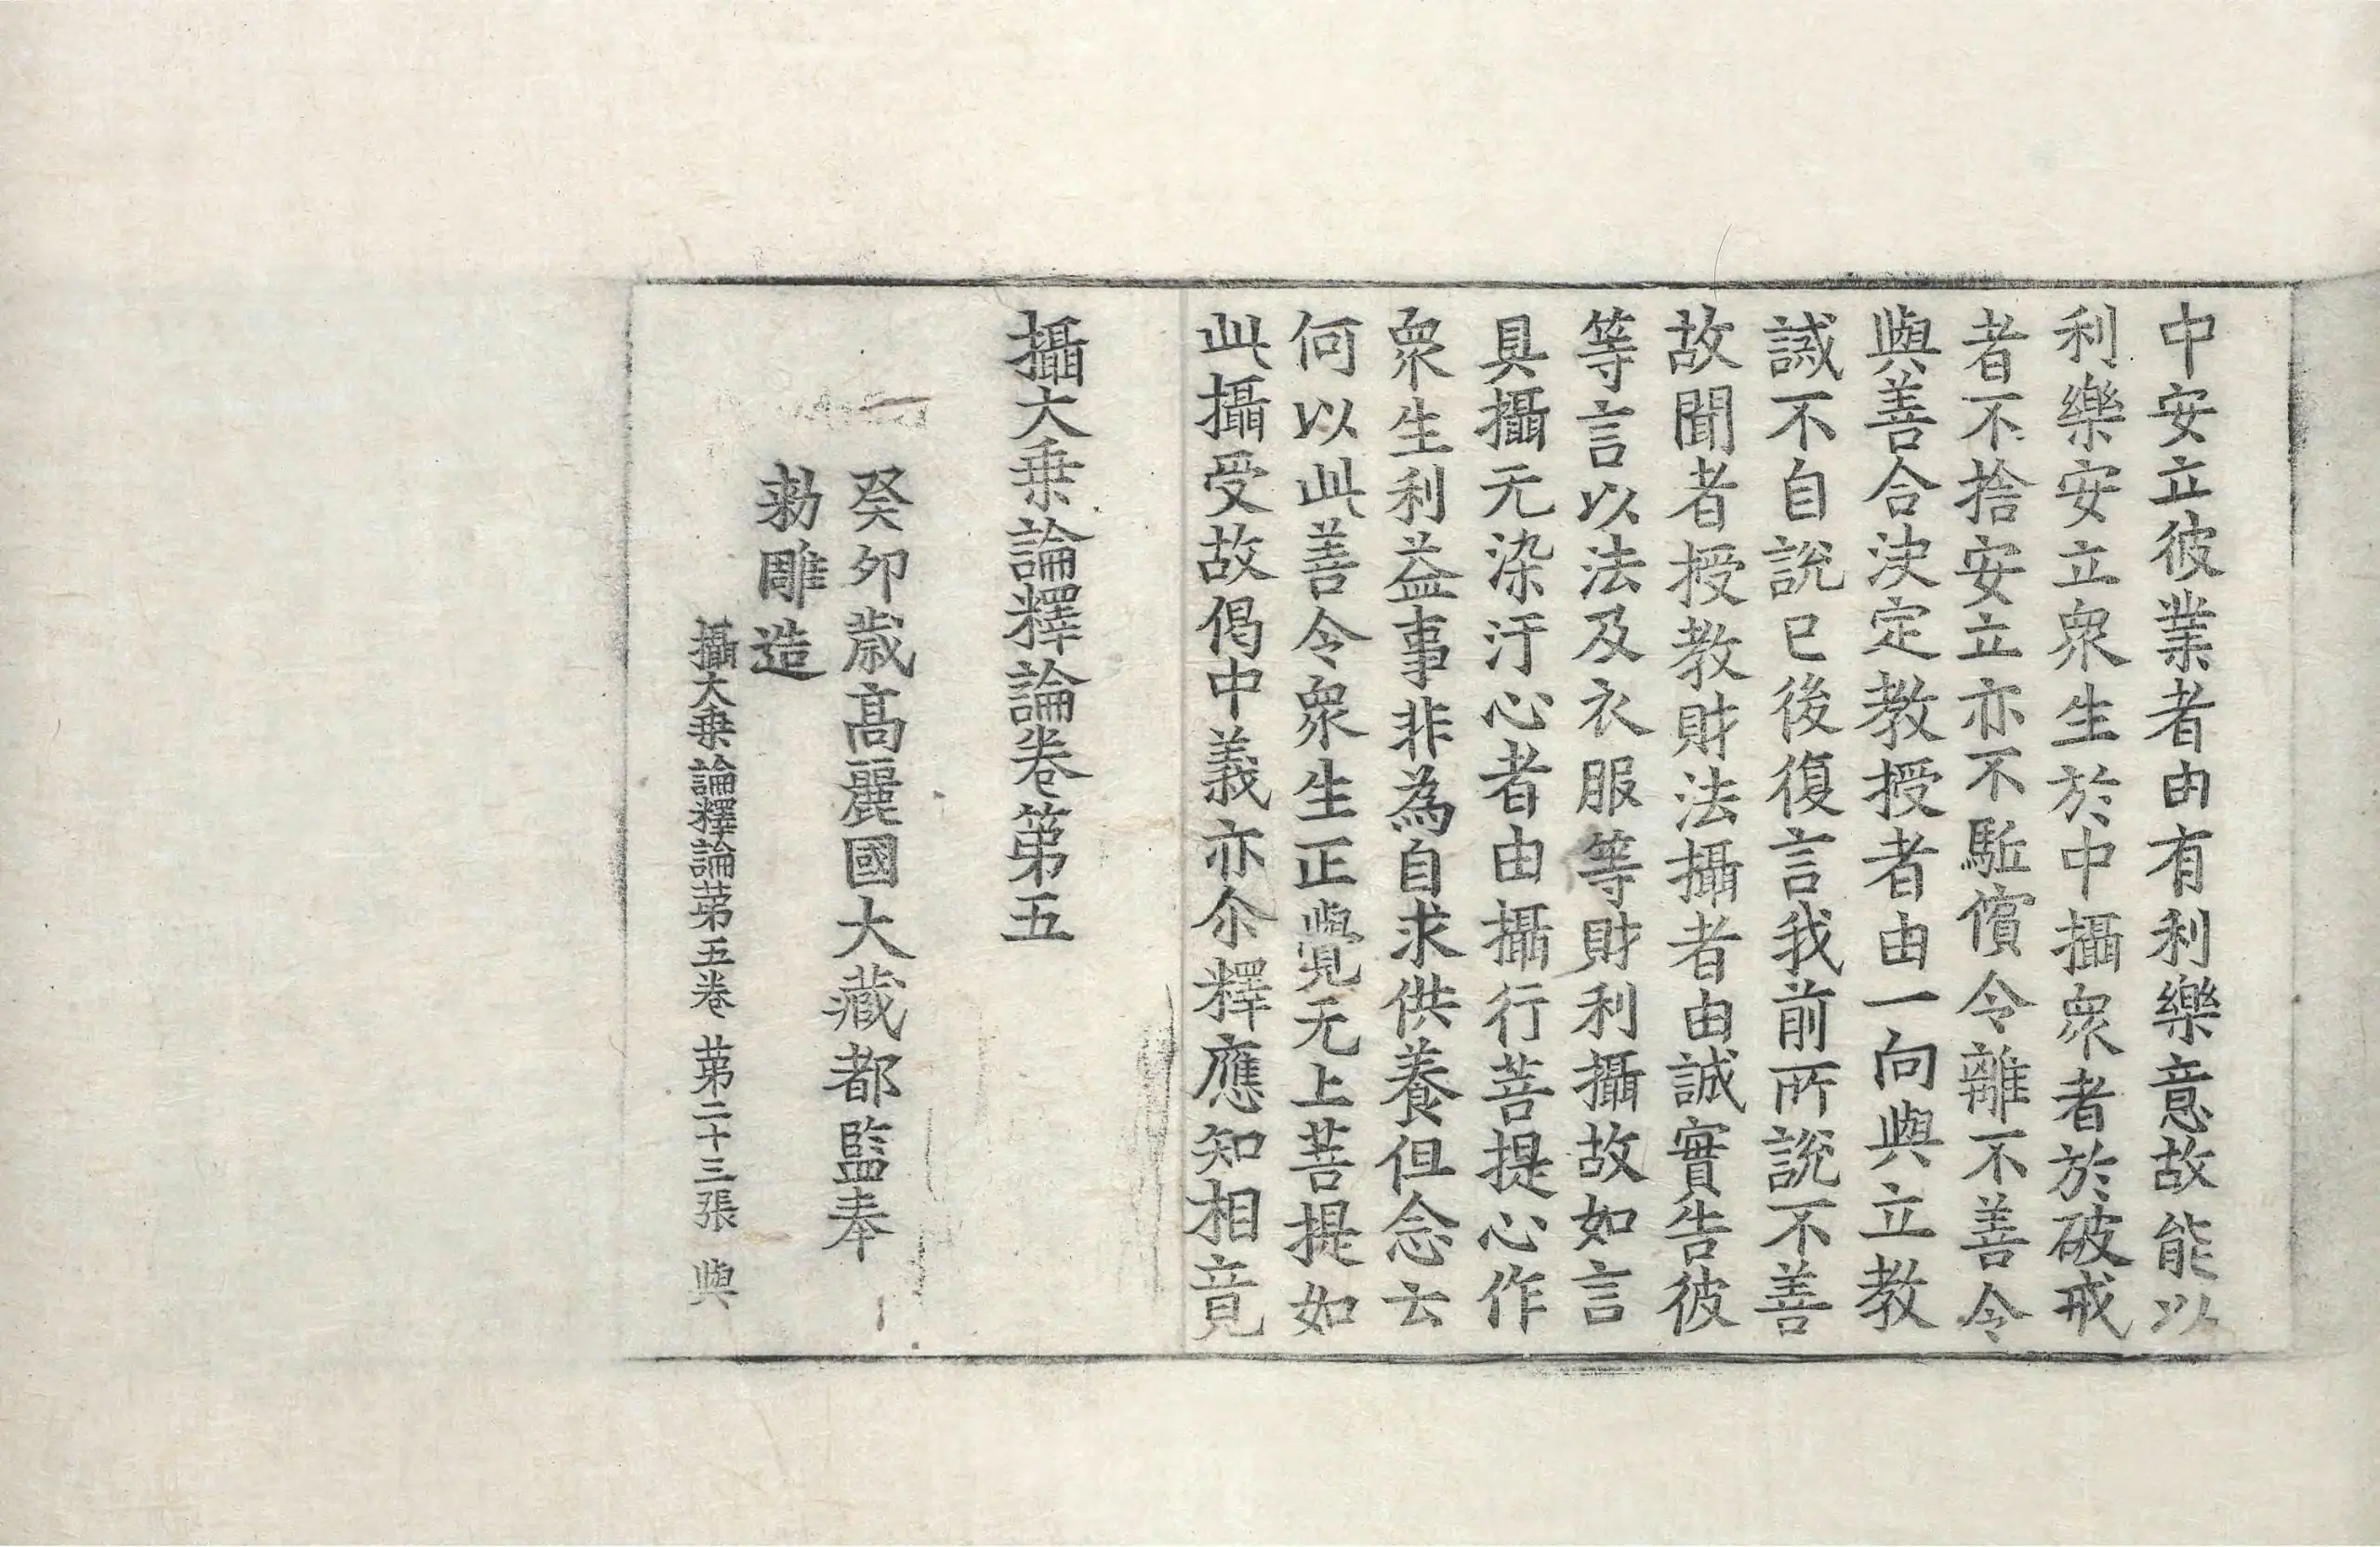 中安立彼業者由有利樂意故能以
利樂安立衆生於中攝衆者於破戒
者不捨安立亦不駈儐令離不善令
與善合決定教授者由一向與立教
誡不自說已後復言我前所說不善
故聞者授教財法攝者由誠實告彼
等言以法及衣服等財利攝故如言
具攝无染汙心者由攝行菩提心作
衆生利益事非為自求供養但念云
何以此善令衆生正覺无上菩提如
此攝受故偈中義亦尒釋應知相竟
攝大乗論釋論卷第五
癸卯歲髙麗國大藏都監奉
勑雕造
攝大乗論釋論苐五卷 苐二十三張 與